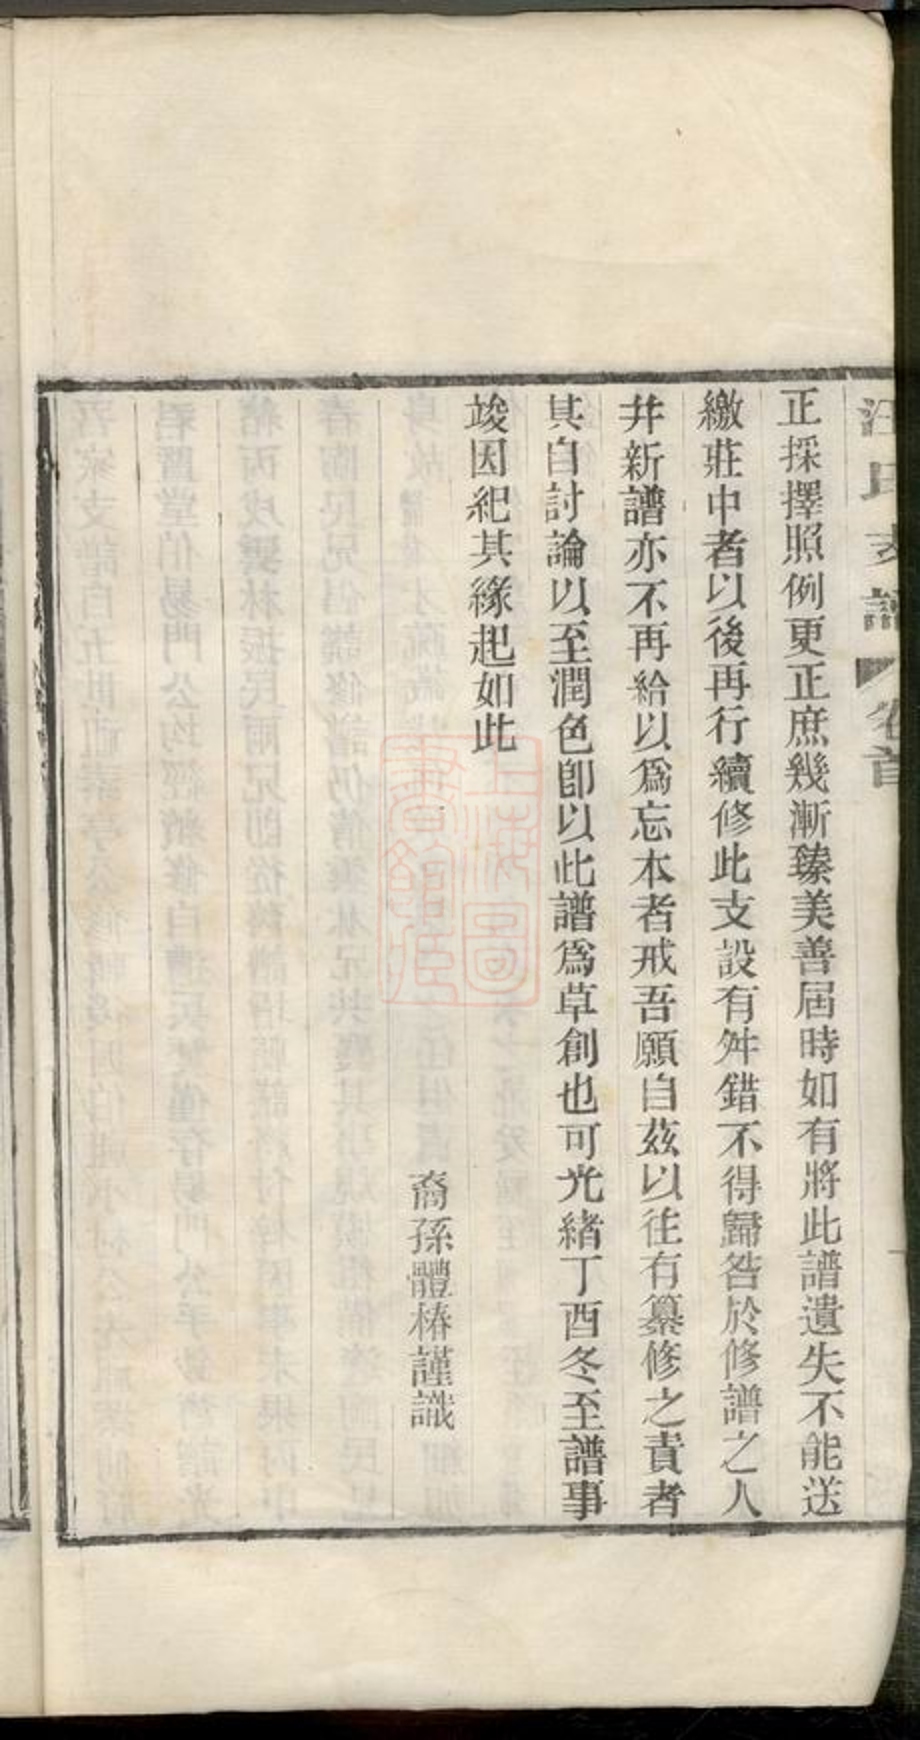 汪氏支譜 卷首
正採擇照例更正庶幾漸臻美善屆時如有將此譜遺失不能送
繳莊中者以後再行續修此支設有舛錯不得歸咎於修譜之人
幷新譜亦不再給以爲忘本者戒吾願自茲以往有纂修之責者
其自討論以至潤色卽以此譜爲草創也可光緒丁酉冬至譜事
竣因紀其緣起如此
裔孫體椿謹識
上海圖書館藏